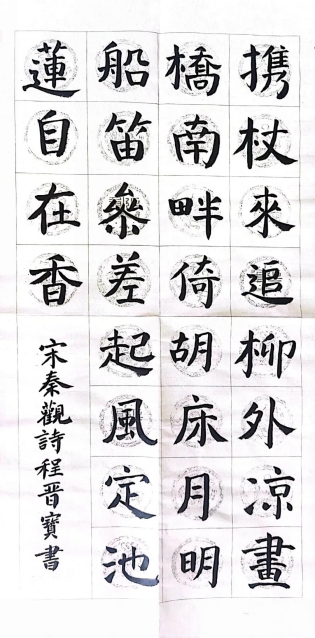 携杖來追柳外涼畫
橋南畔倚胡床月明
船笛參差起風定池
蓮自在香
宋秦觀詩程晋寶書